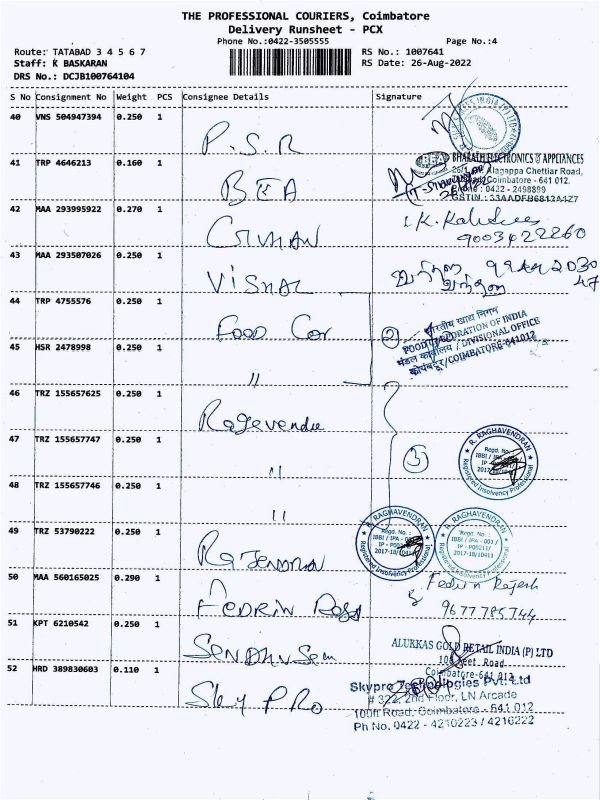 THE PROFESSIONAL COURIERS, Coimbatore
Delivery Runsheet - PCX
Phone No.:0422-3505555 Page No.:4
Route: TATABAD 3 4 5 6 7 RS No.: 1007641
Staff: K BASKARAN RS Date: 26-Aug-2022
DRS No.: DCJB100764104
S No Consignment No Weight PCS Consignee Details Signature
40 VNS 504947394 0.250 1
P.S.R
41 TRP 4646213 0.160 1
BEA
BEA BHARATH ELECTRONICS & APPLIANCES
Alagappa Chettiar Road,
Coimbatore - 641 012.
Phone : 0422 - 2498899
GSTIN : 33AADFB6812A4Z7
42 MAA 293995922 0.270 1
9003422260
43 MAA 293507026 0.250 1
VISHAL
44 TRP 4755576 0.250 1
Food Cor
2
भारतीय खाद्य निगम
FOOD CORPORATION OF INDIA
मंडल कार्यालय / DIVISIONAL OFFICE
कोयंबटूर/COIMBATORE-641012
45 HSR 2478998 0.250 1
"
46 TRZ 155657625 0.250 1
Ragevendra
47 TRZ 155657747 0.250 1
"
3
R. RAGHAVENDRAN
Regd. No.
IBBI / IPA
IP
2017-18/10411
Registered Insolvency Professional
48 TRZ 155657746 0.250 1
"
R. RAGHAVENDRAN
Regd. No. :
IBBI / IPA - 001
IP - P00211
2017-18/10411
Registered Insolvency Professional
R. RAGHAVENDRAN
Regd. No. :
IBBI / IPA - 001 /
IP - P00211/
2017-18/10411
Registered Insolvency Professional
49 TRZ 53790222 0.250 1
Rajendran
50 MAA 560165025 0.290 1
Fedrin Rajesh
9677785744
51 KPT 6210542 0.250 1
ALUKKAS GOLD RETAIL INDIA (P) LTD
100 Feet Road
Coimbatore-641 012
52 HRD 389830603 0.110 1
Sky PRO
Skypro Technologies Pvt. Ltd
# 322, 2nd Floor, LN Arcade
100ft Road, Coimbatore - 641 012
Ph No. 0422 - 4210223 / 4216222